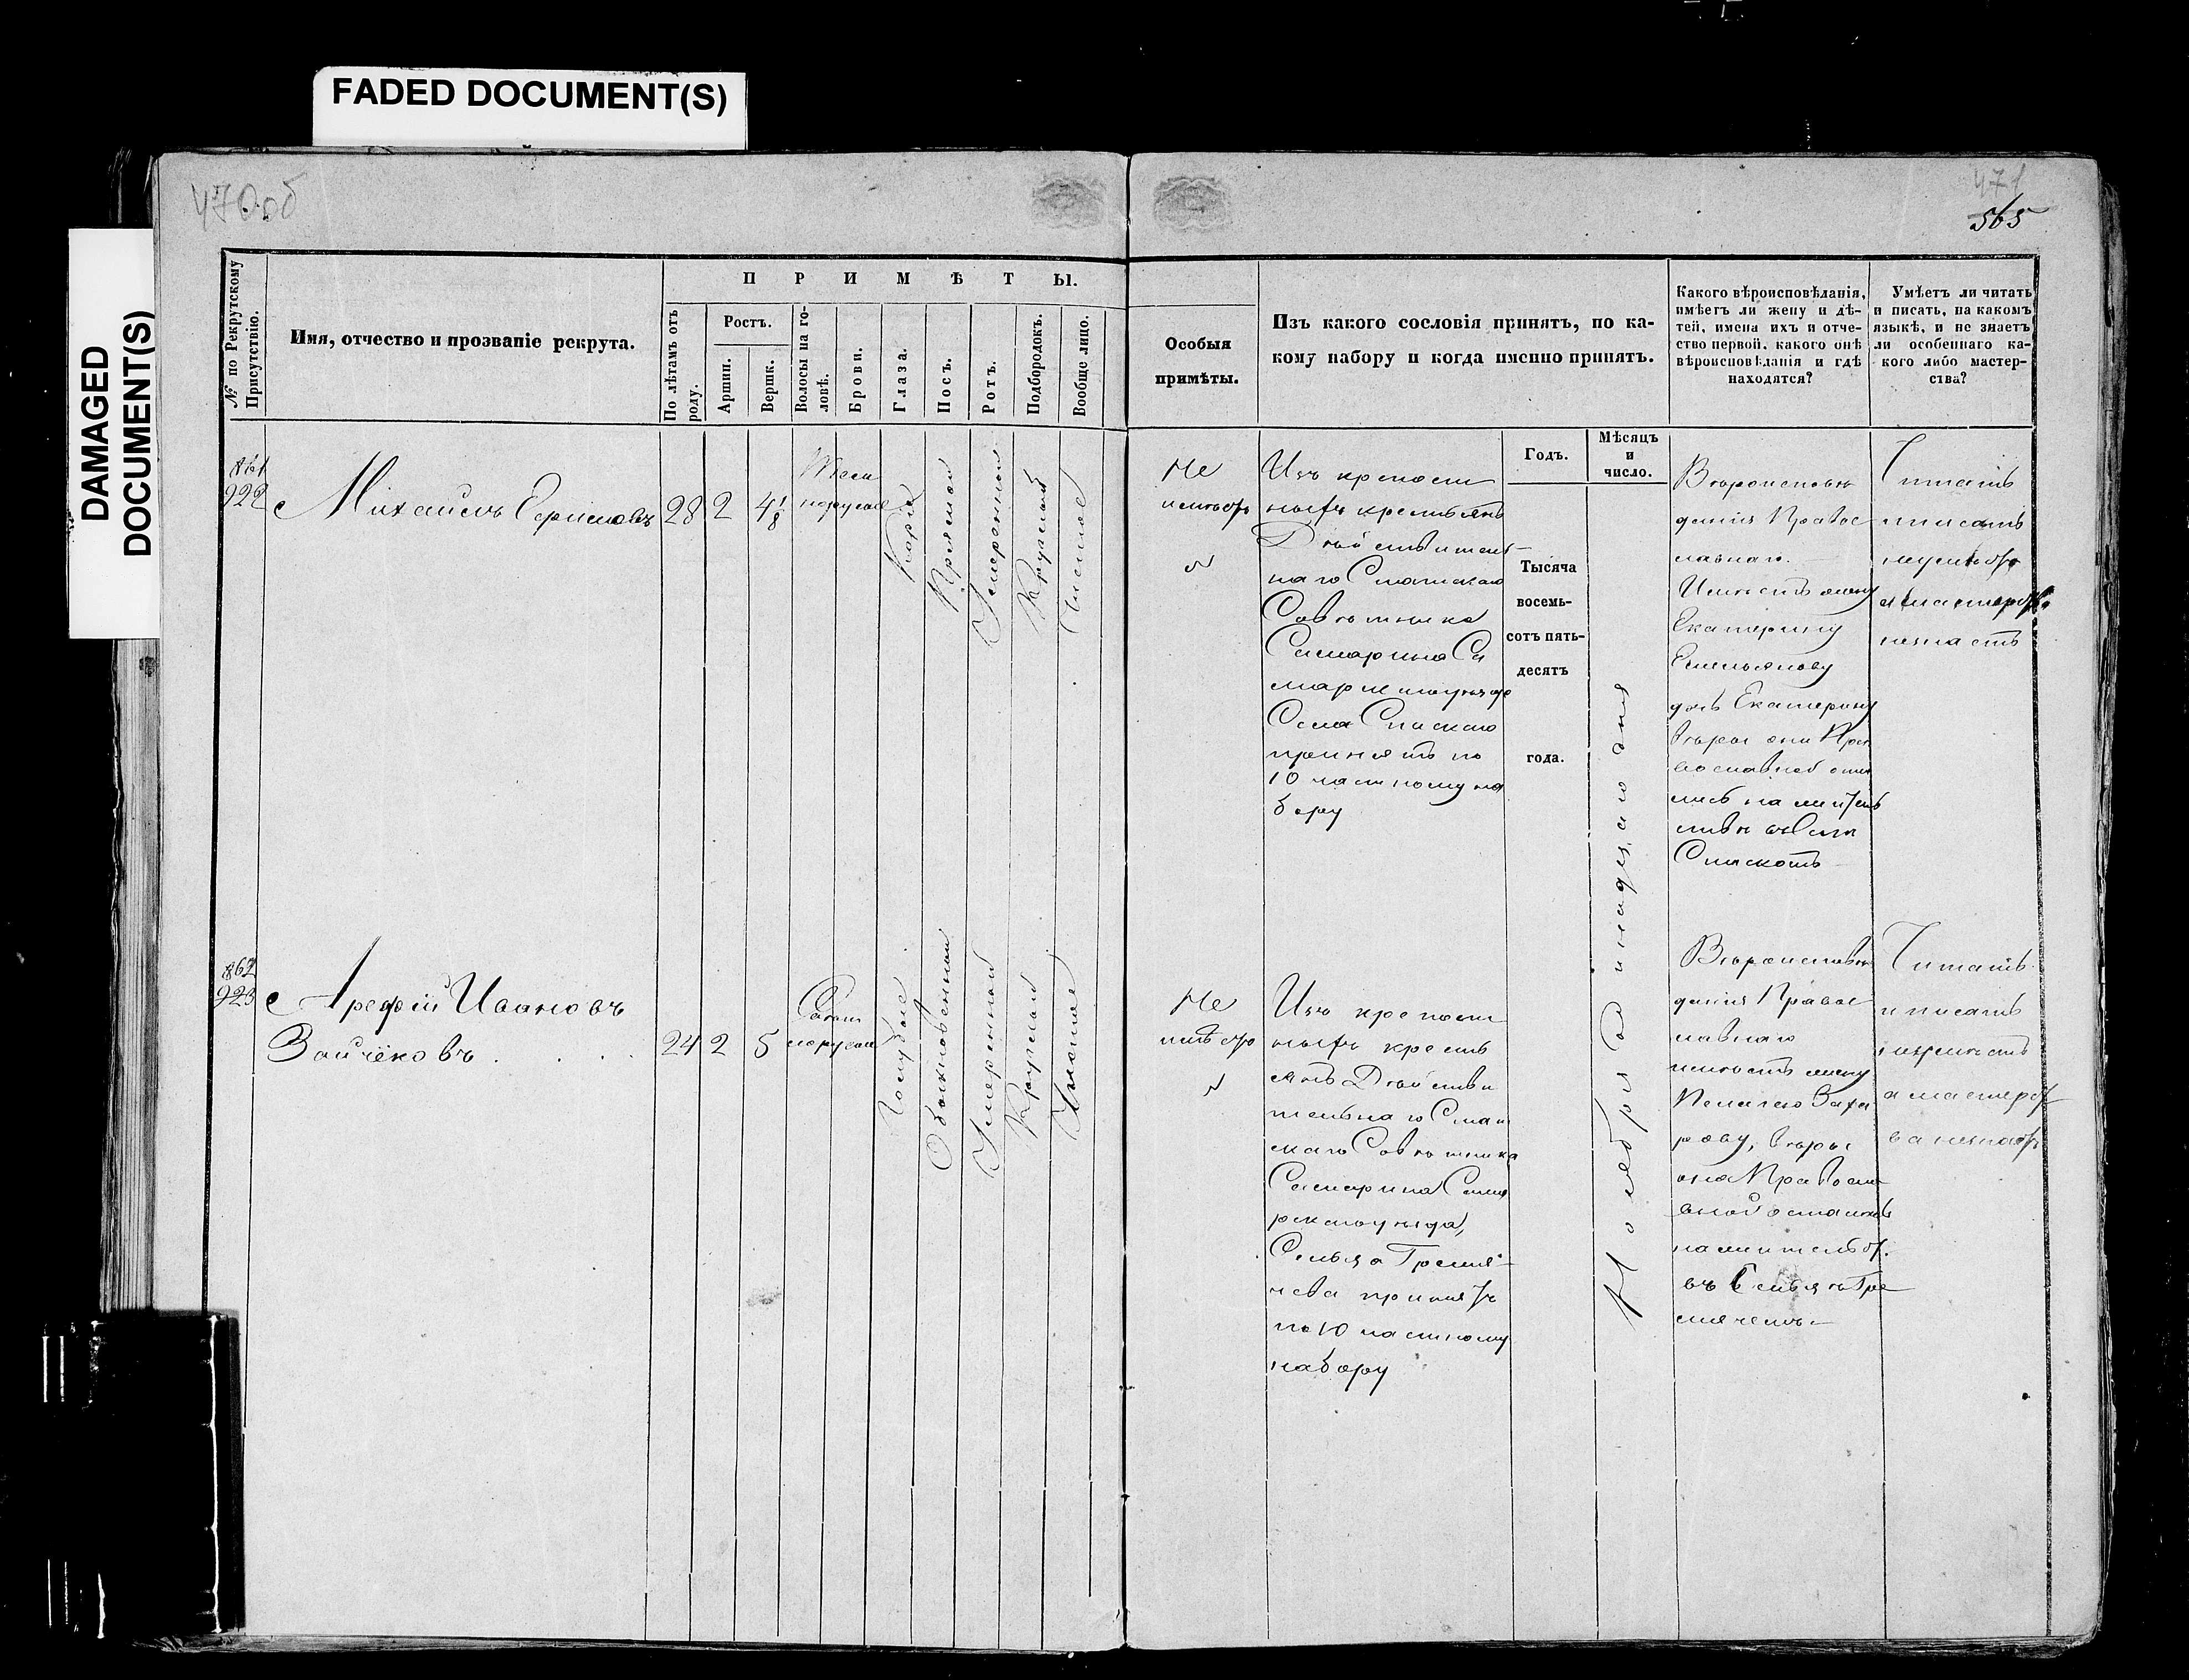 FADED DOCUMENT(S)
DAMAGED
DOCUMENT(S)
470об
471
565
№ по Рекрутскому
Присутствію.
Имя, отчество и прозваніе рекрута.
ПРИМѢТЫ.
По лѣтамъ отъ
роду.
Ростъ.
Аршин.
Вершк.
Волосы на го-
ловѣ.
Брови.
Глаза.
Носъ.
Ротъ.
Подбородокъ.
Вообще лицо.
Особыя
примѣты.
Изъ какого сословія принятъ, по ка-
кому набору и когда именно принятъ.
Какого вѣроисповѣданія,
имѣетъ ли жену и дѣ-
тей, имена ихъ и отче-
ство первой, какого онѣ
вѣроисповѣданія и гдѣ
находятся?
Умѣетъ ли читать
и писать, на какомъ
языкѣ, и не знаетъ
ли особеннаго ка-
кого либо мастер-
ства?
Годъ.
Мѣсяцъ
и
число.
Тысяча
восемь-
сотъ пять-
десятъ
года.
Ноября одинадцатаго дня
861
922
Михаилъ
28
2
4 1/8
Темно
русые
Каріе
Прямой
Умеренный
Круглый
Чистое
Не
имѣетъ
Изъ крепост
ныхъ крестьянъ
Действитель
наго Статскаго
Совѣтника
Самарина Са
марск уезда
Села Спаскаго
принятъ по
10 частному на
бору
Вѣроисповѣ
данія Правос
лавнаго.
Имѣетъ жену
Екатерину
Емельянову
дочь Екатерину
вѣры они Пра
вославной
на жительс
ствѣ въ Селѣ
Спаскомъ
Читать
писать
неумѣетъ
незнаетъ
862
923
Арефій Ивановъ
Зайчёковъ
24
2
5
Светло
русые
Голубые
Обыкновенный
Умеренный
Круглый
Чистое
Не
имѣетъ
Изъ крепост
ныхъ кресть
янъ Действи
тельнаго Стат
скаго Совѣтника
Самарина Сама
рск уезда,
Сельца Гремя-
чева принятъ
по 10 частному
набору
Вѣроисповѣ
данія Правос
лавнаго
имѣетъ жену
Пелагею Заха
рову, вѣры
она Правосла
вной осталась
на жительст.
въ Сельцѣ Гре
мячемъ
Читать
и писать
неумѣетъ
а мастерст
ва незнаетъ